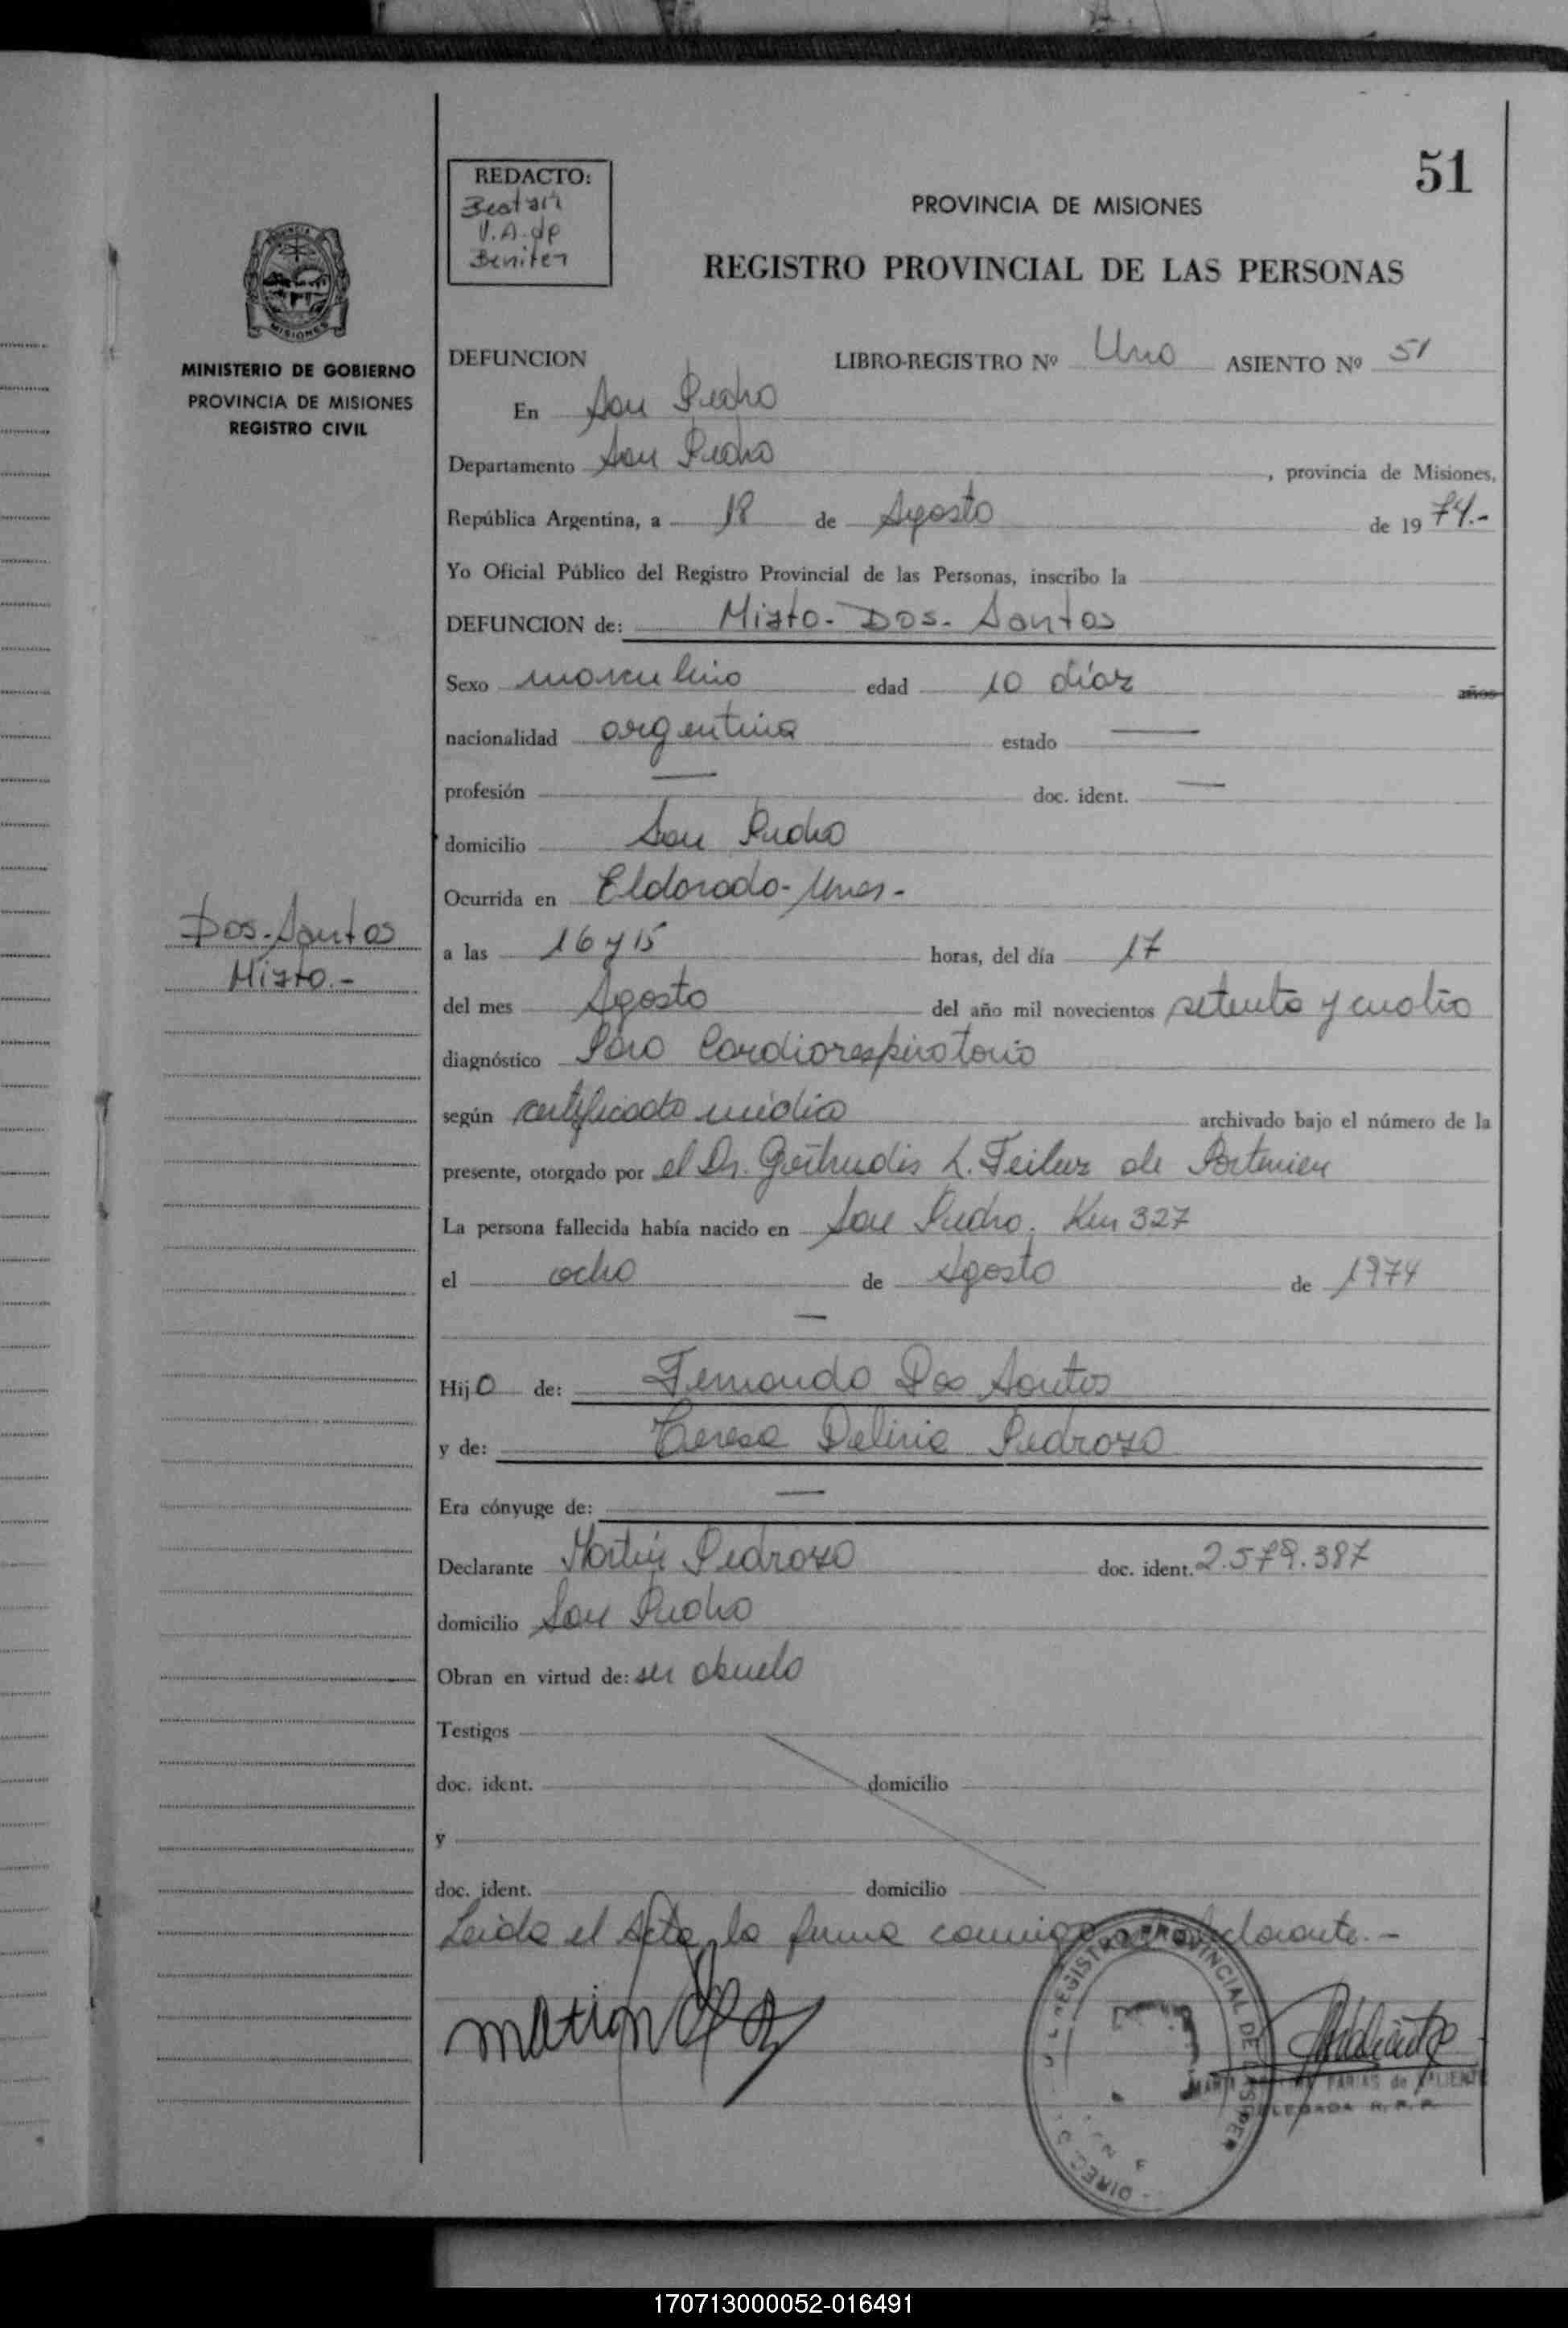 51
REDACTO:
Beatriz
V.A. de
Benitez
PROVINCIA DE MISIONES
REGISTRO PROVINCIAL DE LAS PERSONAS
MINISTERIO DE GOBIERNO
PROVINCIA DE MISIONES
REGISTRO CIVIL
DEFUNCION LIBRO-REGISTRO Nº Uno ASIENTO Nº 51
En San Pedro
Departamento San Pedro , provincia de Misiones,
República Argentina, a 18 de Agosto de 1974.-
Yo Oficial Público del Registro Provincial de las Personas, inscribo la
DEFUNCION de: Mixto- Dos- Santos
Sexo masculino edad 10 días años
nacionalidad argentina estado —
profesión — doc. ident. —
domicilio San Pedro
Ocurrida en Eldorado- Mnes-
Dos-Santos
Mixto.-
a las 16 y 15 horas, del día 17
del mes Agosto del año mil novecientos setenta y cuatro
diagnóstico Paro Cardiorespiratorio
según certificado médico archivado bajo el número de la
presente, otorgado por el Dr. Gertrudis L. de
La persona fallecida había nacido en San Pedro. Km 327
el ocho de Agosto de 1974
—
Hijo de: Fernando Dos Santos
y de: Teresa Deliria Pedrozo
Era cónyuge de: —
Declarante Martín Pedrozo doc. ident. 2.579.387
domicilio San Pedro
Obran en virtud de: ser abuelo
Testigos
doc. ident. domicilio
y
doc. ident. domicilio
Leida el Acta, la firma conmigo el declarante.-
REGISTRO PROVINCIAL DE LAS PER
FARIAS de VALIENTE
DELEGADA R. P. P.
170713000052-016491